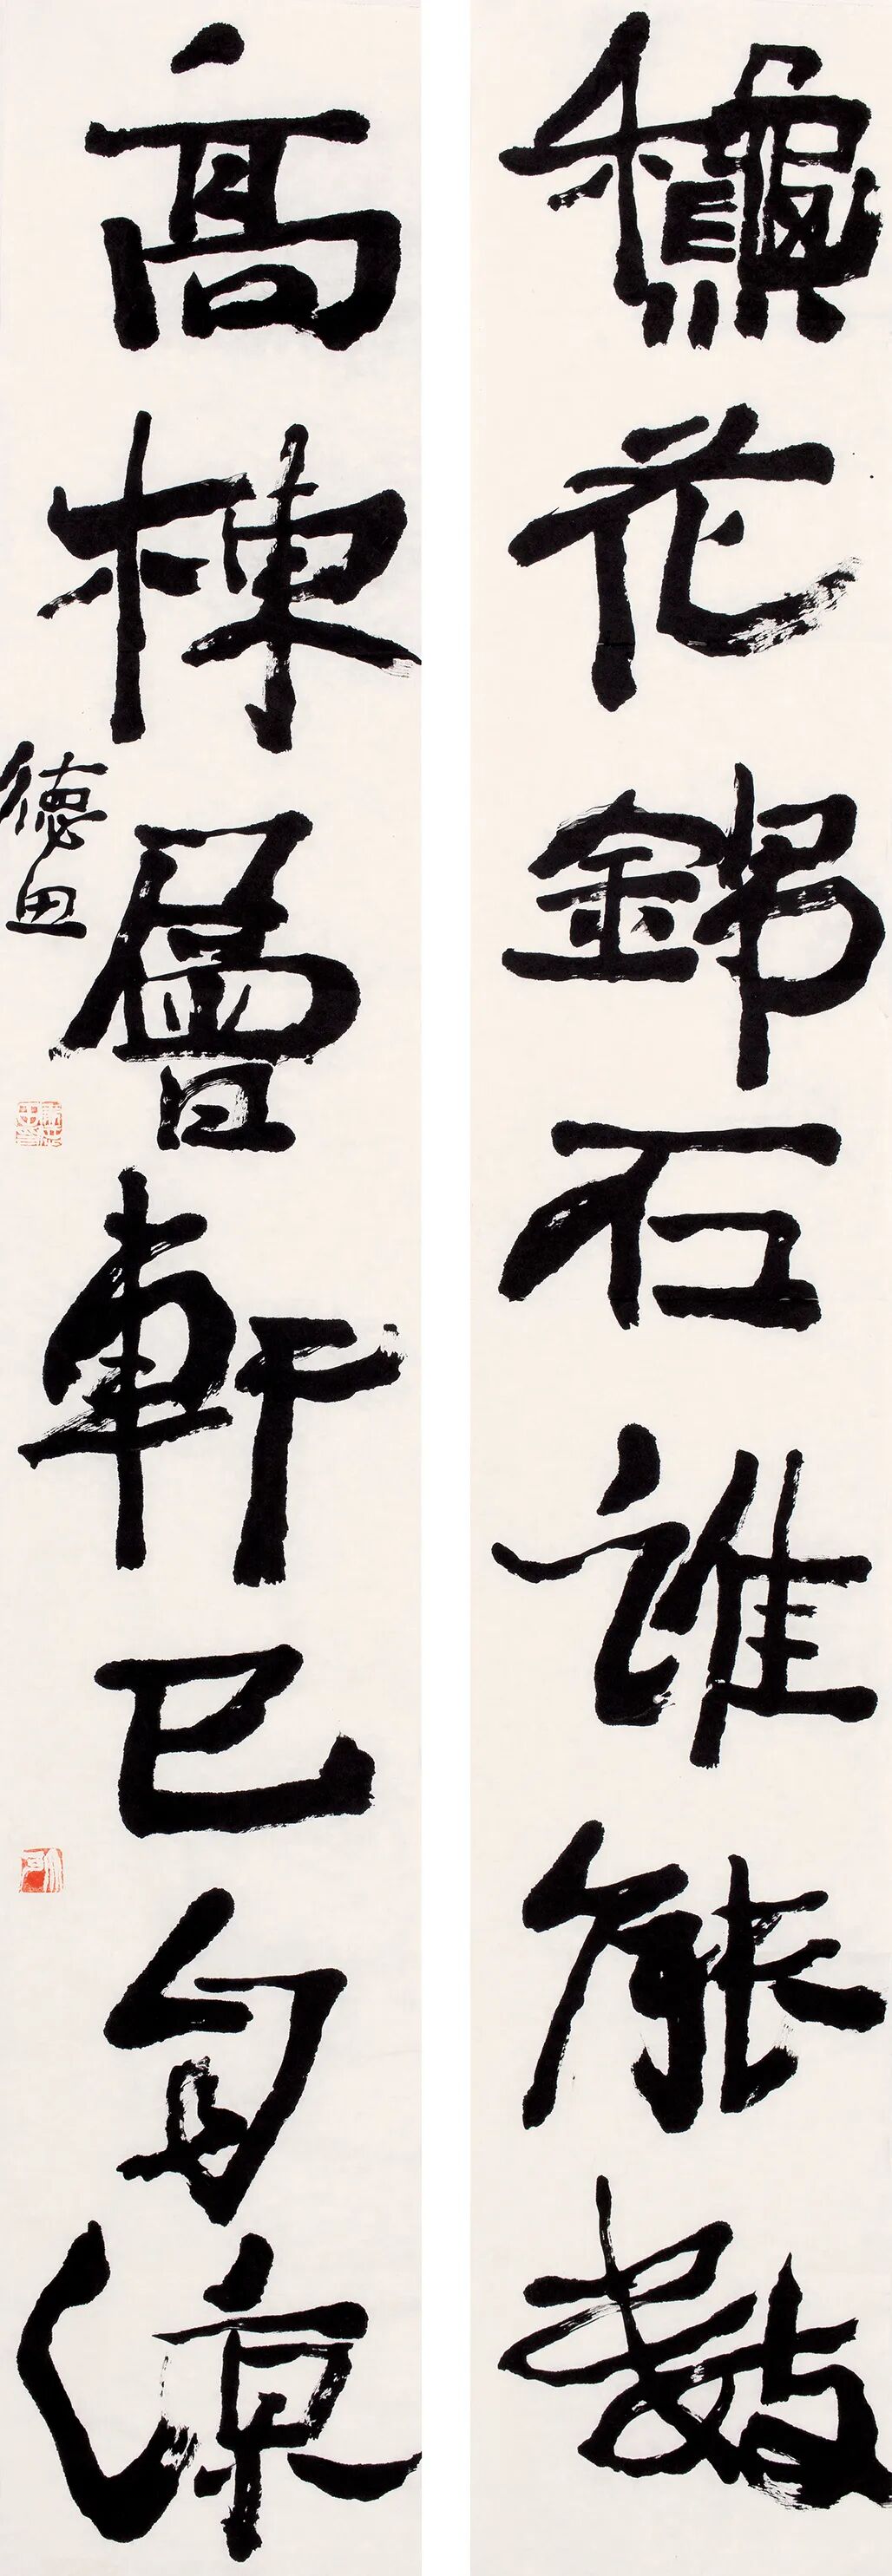 穐花錦石誰能數
高棟層軒已自涼
德田